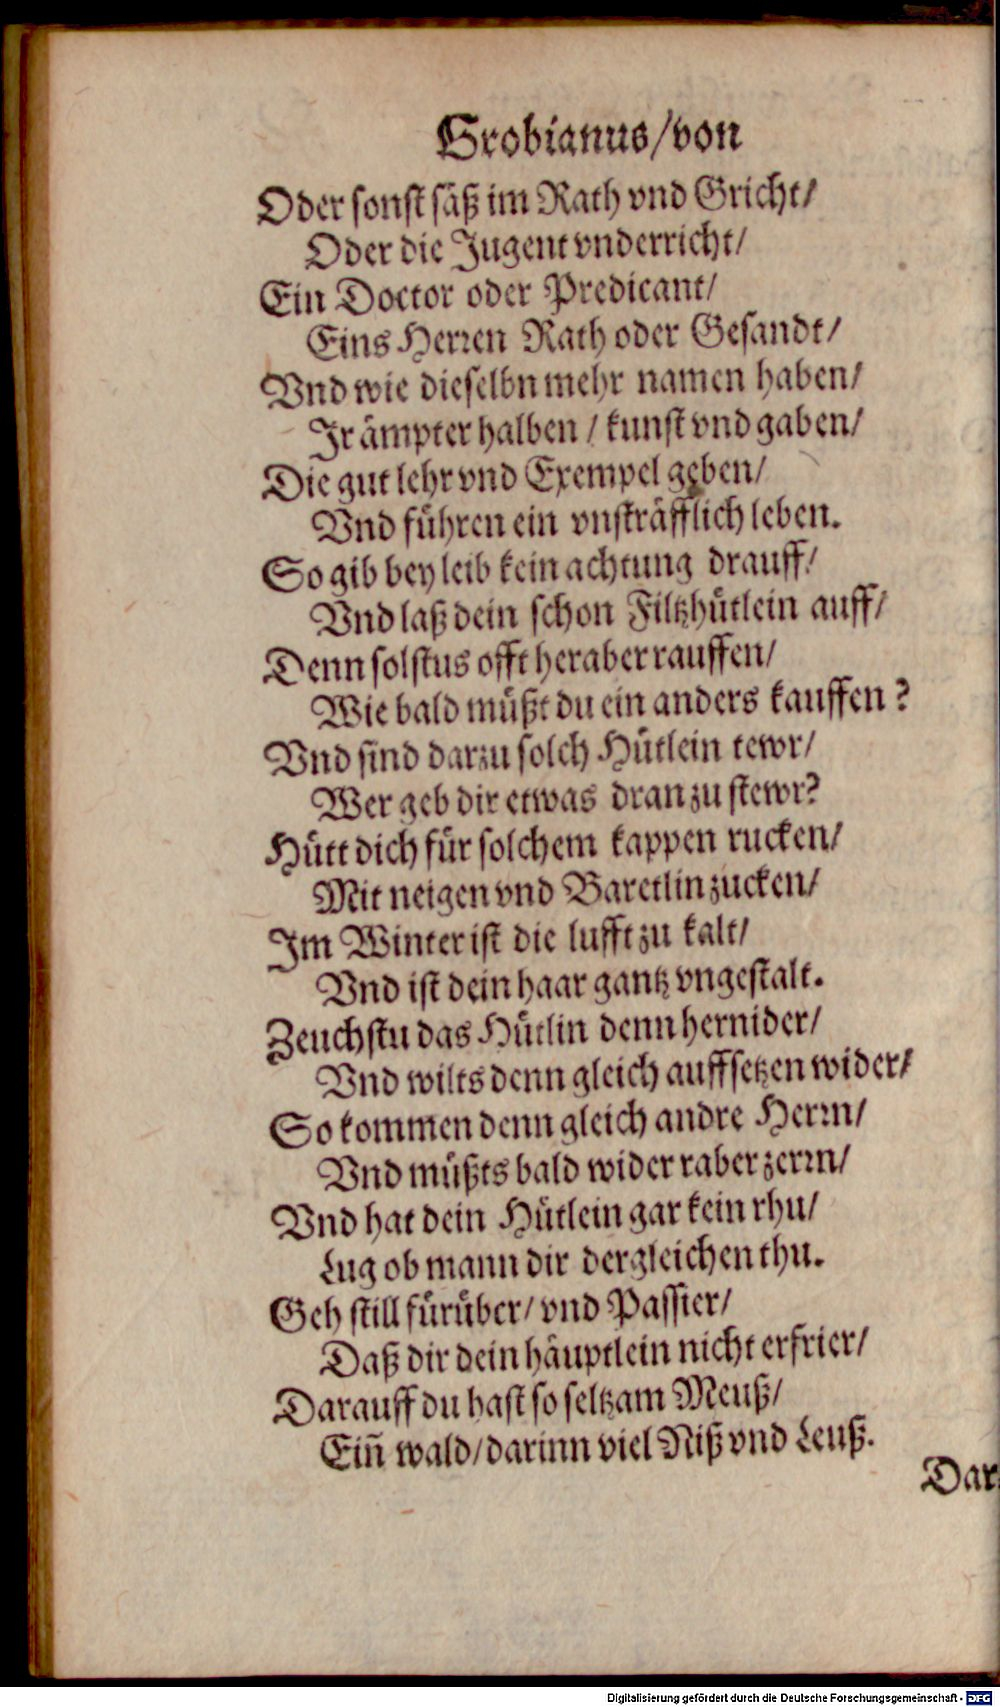 Grobianus/von
Oder sonst säß im Rath vnd Gricht/
Oder die Jugent vnderricht/
Ein Doctor oder Predicant/
Eins Herren Rath oder Gesandt/
Vnd wie dieselbn mehr namen haben/
Jr ämpter halben / kunst vnd gaben/
Die gut lehr vnd Exempel geben/
Vnd führen ein vnsträfflich leben.
So gib bey leib kein achtung drauff/
Vnd laß dein schon Filtzhütlein auff/
Denn solstus offt heraber rauffen/
Wie bald müßt du ein anders kauffen?
Vnd sind darzu solch Hütlein tewr/
Wer geb dir etwas dran zu stewr?
Hütt dich für solchem kappen rucken/
Mit neigen vnd Baretlin zucken/
Jm Winter ist die lufft zu kalt/
Vnd ist dein haar gantz vngestalt.
Zeuchstu das Hütlin denn hernider/
Vnd wilts denn gleich auffsetzen wider/
So kommen denn gleich andre Herrn/
Vnd müßts bald wider raber zerrn/
Vnd hat dein Hütlein gar kein rhu/
Lug ob mann dir dergleichen thu.
Geh still fürüber/ vnd Passier/
Daß dir dein häuptlein nicht erfrier/
Darauff du hast so seltzam Meuß/
Ein̄ wald/darinn viel Niß vnd Leuß.
Dar-
Digitalisierung gefördert durch die Deutsche Forschungsgemeinschaft - DFG